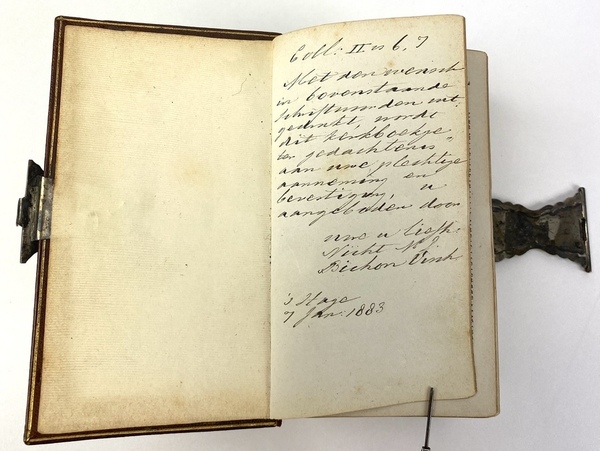 Coll: II vs 6, 7
Met den wensch
in bovenstaande
schriftwoorden uit-
gedrukt, wordt
dit kerkboekje
ter gedachtenis
aan uwe plechtige
aanneming en
bevestiging, u
aangeboden door
uwe u liefh.
Nicht
Bichon Visch
's Hage
7 Jan: 1883